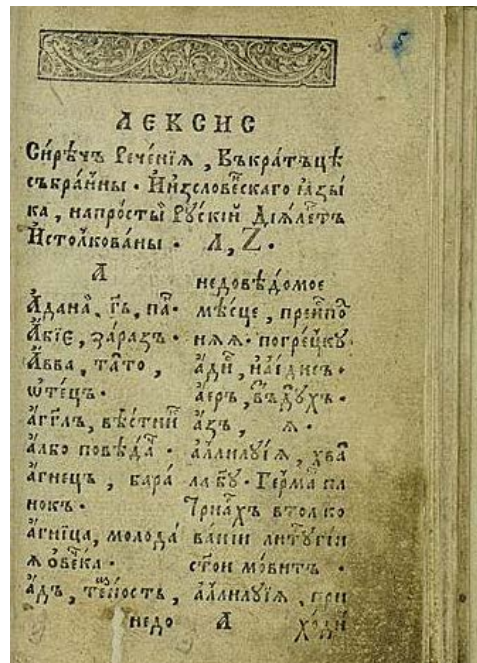 ЛЕКСИС
Си́рѣчъ Рече́нїѧ, Въкра́тъцѣ
събра́нны. И҆и҆зслове́нскаго ѧ҆зы́
ка, напросты́й Рꙋ́скїй Дїѧ́лектъ
И҆столко́ваны. А, Z.
А
А҆дана́и, гь, па́нъ.
А҆́бїе, за́разъ.
А҆́вва, та́то,
ѻ҆те́цъ.
а҆́гглъ, вѣ́стникъ
а҆́лбо повѣ́дач.
а҆́гнецъ, бара
нокъ.
а҆́гница, молода́
ѧ ѻ҆ве́чка.
а҆́дъ, те́мность,
недо
недовѣ́домое
мѣ́сце, преиспо́
нѧѧ. погре́цкꙋ.
а҆́ди, на́идисъ.
а҆́еръ, въздꙋхъ.
а҆́зъ, ѧ.
а҆ллилꙋ́їа, хва
ла бг҃ꙋ. Ге́рманъ па
трїа́хъ втолко
ва́нїи литꙋ́ргїи
стои мо́витъ.
а҆ллилꙋ́їа, при
А ходи